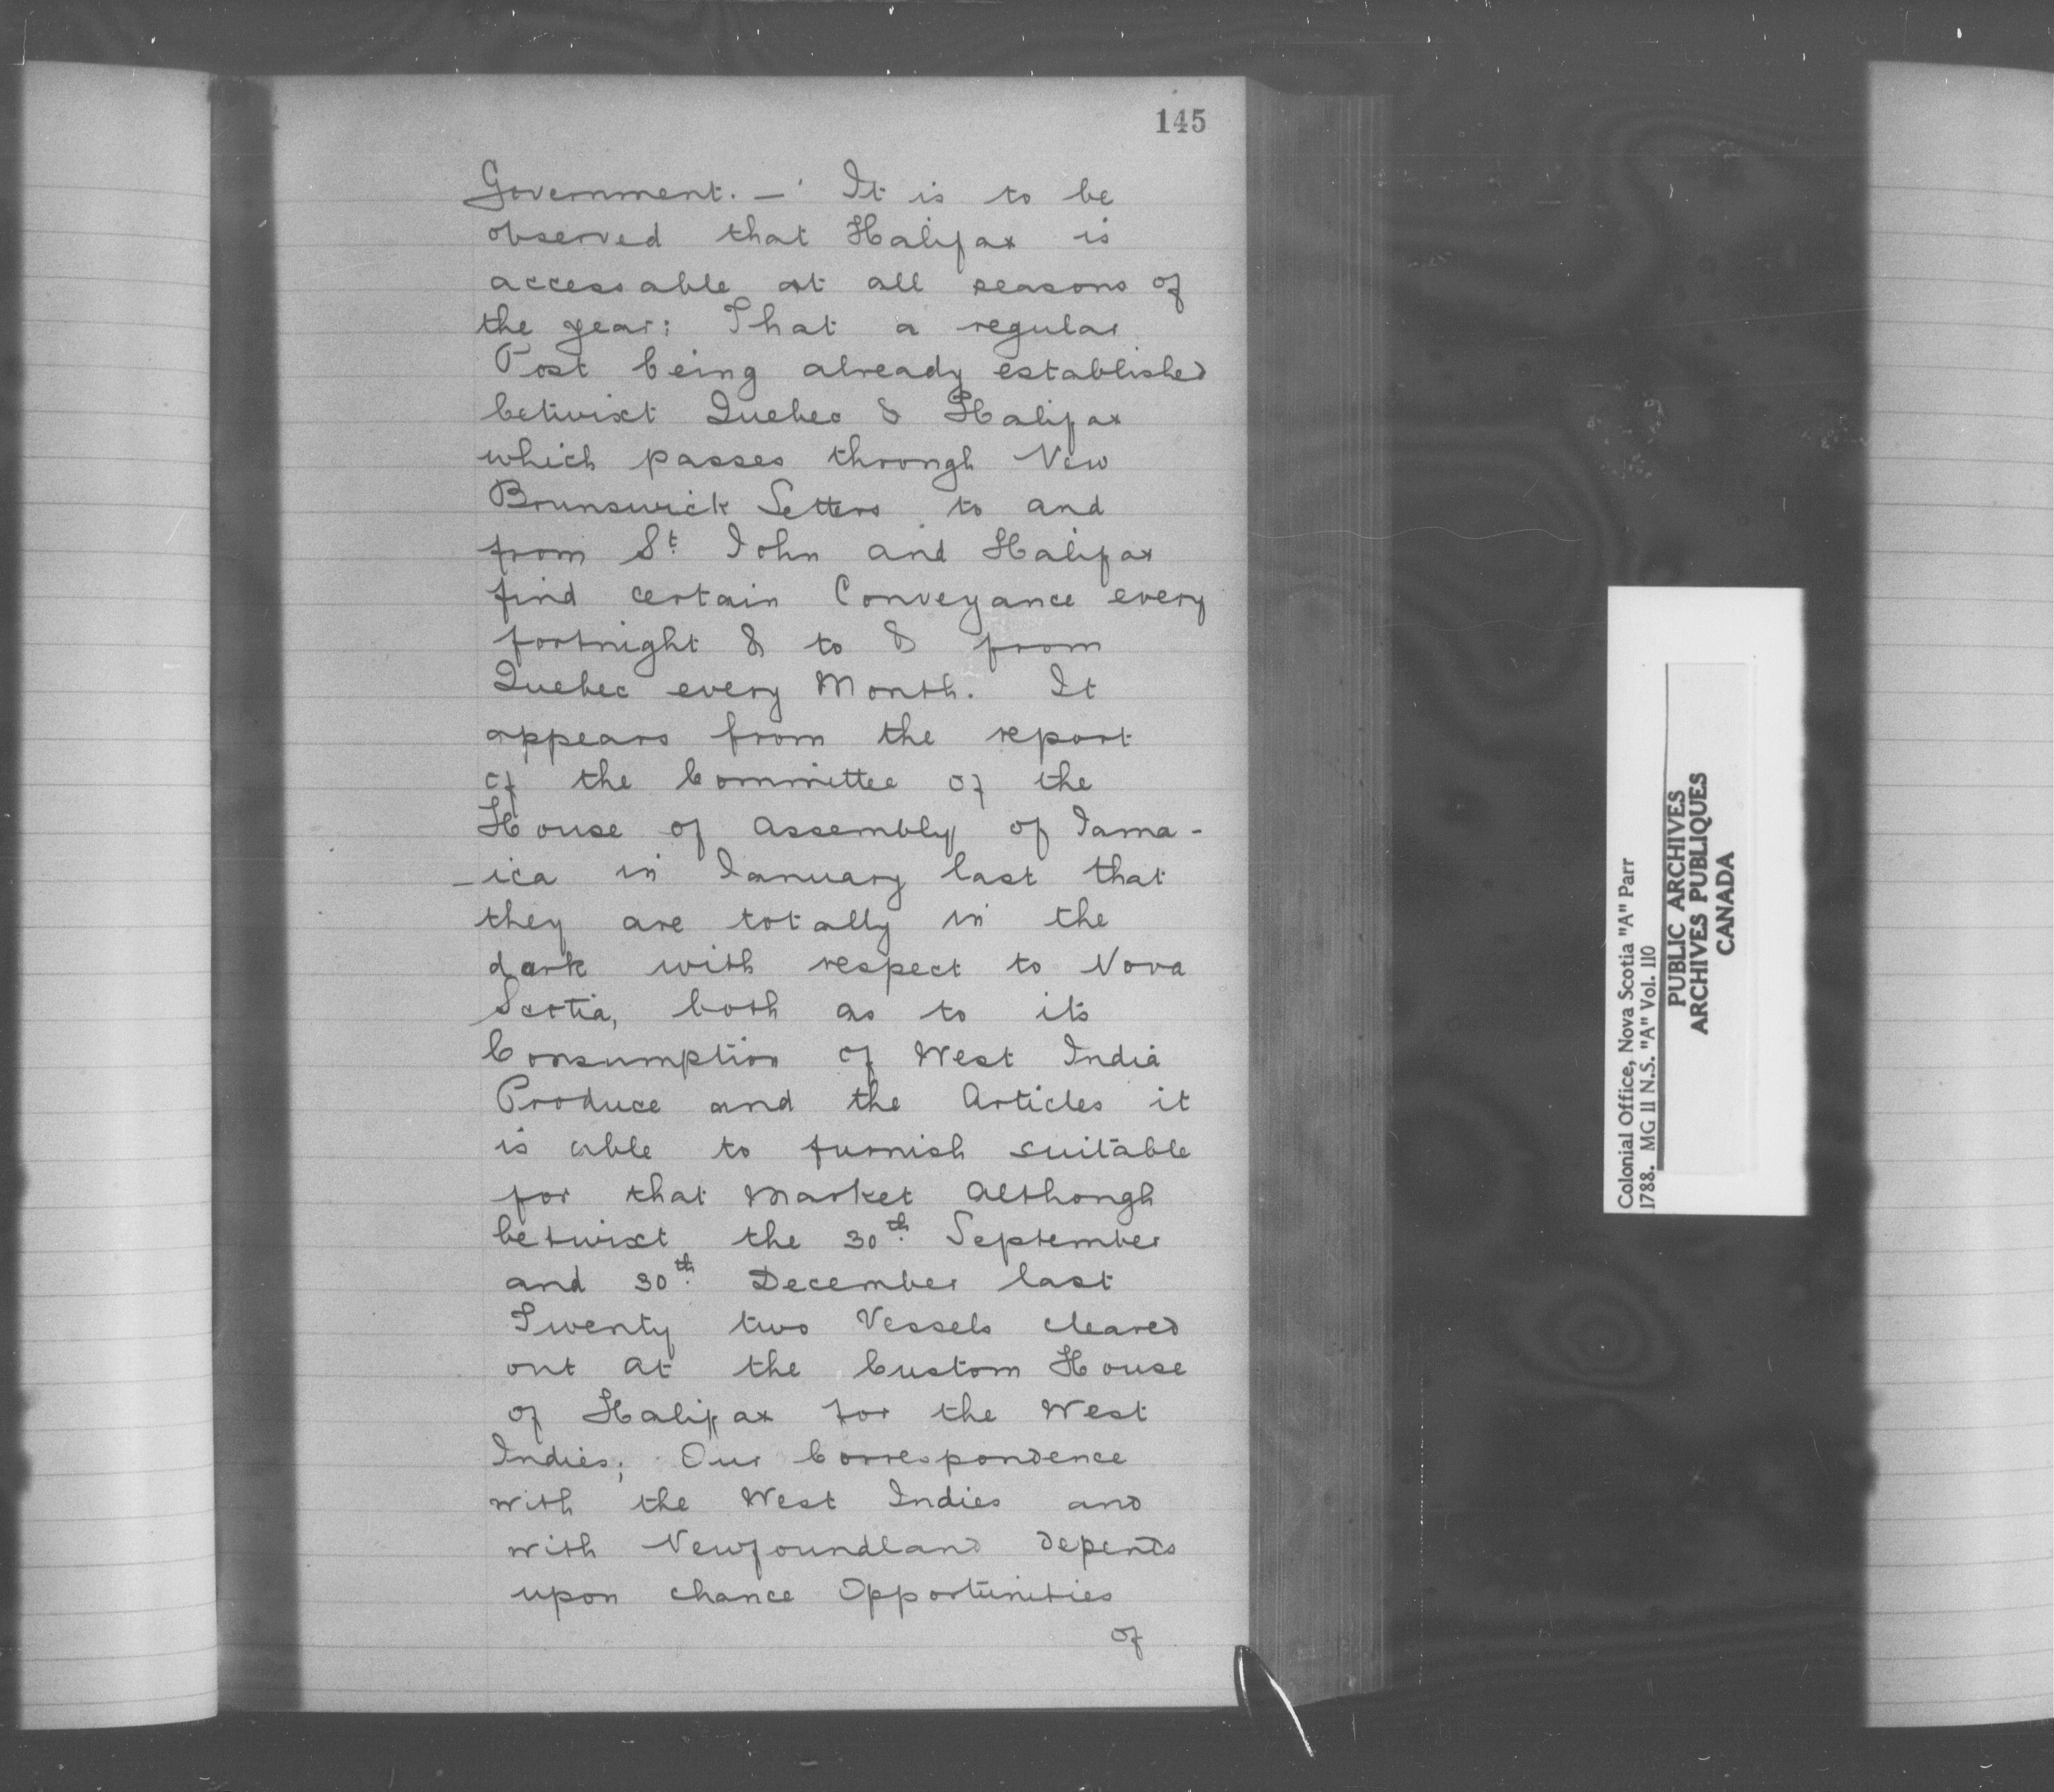 145
Government. — It is to be
observed that Halifax is
accessable at all seasons of
the year: That a regular
Post being already established
betwixt Quebec & Halifax
which passes through New
Brunswick Letters to and
from St. John and Halifax
find certain Conveyance every
fortnight & to & from
Quebec every Month. It
appears from the report
of the Committee of the
House of Assembly of Jama-
-ica in January last that
they are totally in the
dark with respect to Nova
Scotia, both as to its
Consumption of West India
Produce and the Articles it
is able to furnish suitable
for that Market Although
betwixt the 30th. September
and 30th. December last
Twenty two Vessels cleared
out at the Custom House
of Halifax for the West
Indies; Our Correspondence
with the West Indies and
with Newfoundland depends
upon chance Opportunities
of
Colonial Office, Nova Scotia "A" Parr
1788. MG 11 N.S. "A" Vol. 110
PUBLIC ARCHIVES
ARCHIVES PUBLIQUES
CANADA